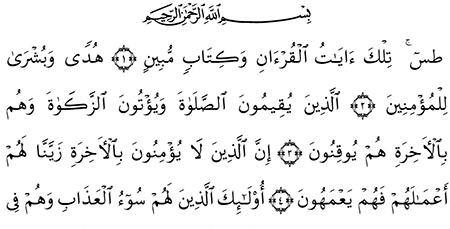 بِسْمِ اللَّهِ الرَّحْمَٰنِ الرَّحِيمِ
طسٓ ۚ تِلْكَ ءَايَٰتُ الْقُرْءَانِ وَكِتَابٍ مُّبِينٍ ﴿١﴾ هُدًى وَبُشْرَىٰ
لِلْمُؤْمِنِينَ ﴿٢﴾ الَّذِينَ يُقِيمُونَ الصَّلَوٰةَ وَيُؤْتُونَ الزَّكَوٰةَ وَهُم
بِالْأَخِرَةِ هُمْ يُوقِنُونَ ﴿٣﴾ إِنَّ الَّذِينَ لَا يُؤْمِنُونَ بِالْأَخِرَةِ زَيَّنَّا لَهُمْ
أَعْمَٰلَهُمْ فَهُمْ يَعْمَهُونَ ﴿٤﴾ أُوْلَٰٓئِكَ الَّذِينَ لَهُمْ سُوٓءُ الْعَذَابِ وَهُمْ فِى